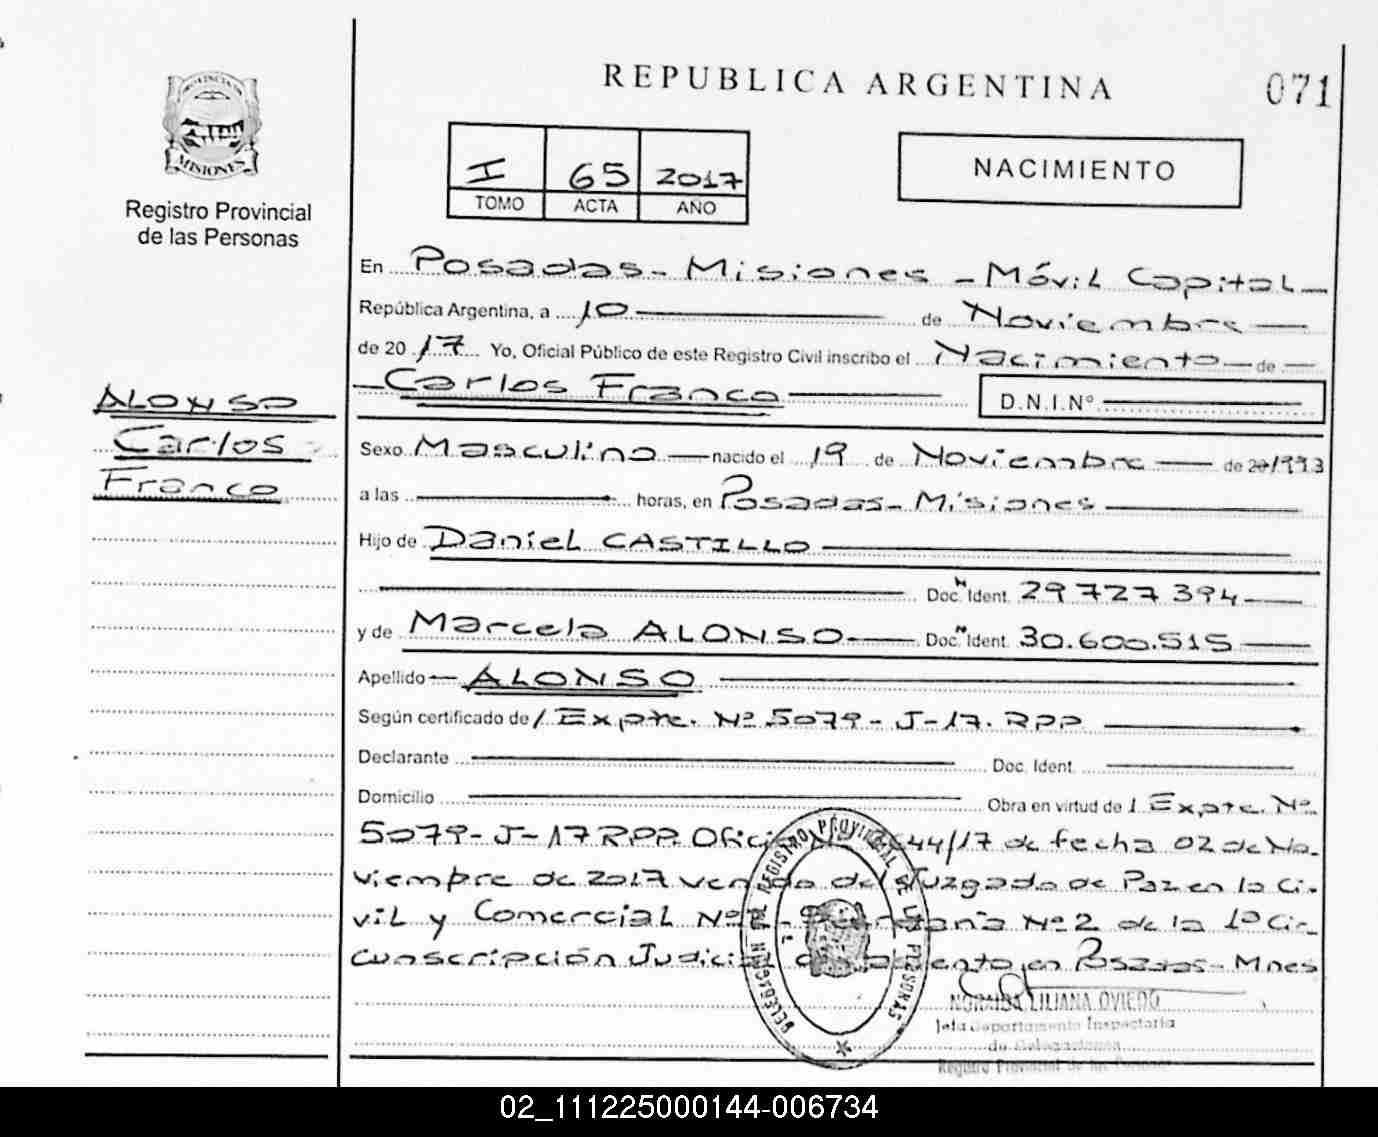 REPUBLICA ARGENTINA
071
PROVINCIA DE
MISIONES
Registro Provincial
de las Personas
I 65 2017
TOMO ACTA AÑO
NACIMIENTO
En Posadas - Misiones - Móvil Capital -
República Argentina, a 10 de Noviembre
de 2017 Yo, Oficial Público de este Registro Civil inscribo el Nacimiento de
Carlos Franco
D.N.I.Nº
ALONSO
Carlos
Franco
Sexo Masculino nacido el 19 de Noviembre de 1993
a las horas, en Posadas - Misiones
Hijo de Daniel CASTILLO
Doc. Ident. 29 727 394
y de Marcela ALONSO Doc. Ident. 30.600.515
Apellido ALONSO
Según certificado de / Expte. Nº 5079 - J - 17. RPP
Declarante Doc. Ident.
Domicilio Obra en virtud de / Expte. Nº
5079 - J - 17 RPP. Oficio 44/17 de fecha 02 de No.
viembre de 2017 venido del Juzgado de Paz en lo Ci.
vil y Comercial Nº Nº 2 de la 1º Cir_
cunscripción Judicial en Posadas - Mnes
DELEGACION DEL REGISTRO PROVINCIAL DE LAS PERSONAS
NORAIDA LILIANA OVIEDO
Jefa Departamento Inspectoría
de Delegaciones
Registro Provincial de las Personas
02_111225000144-006734